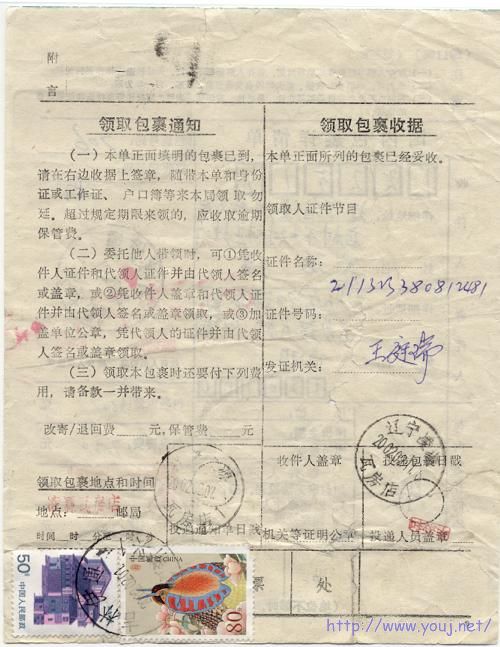 附
言
领取包裹通知
(一)本单正面填明的包裹已到,
请在右边收据上签章,随带本单和身份
证或工作证、户口簿等来本局领取勿
延。超过规定期限来领的,应收取逾期
保管费。
(二)委托他人带领时,可①凭收
件人证件和代领人证件并由代领人签名
或盖章,或②凭收件人盖章和代领人证
件并由代领人签名或盖章领取,或③加
盖单位公章,凭代领人的证件并由代领
人签名或盖章领取。
(三)领取本包裹时还要付下列费
用,请备款一并带来。
改寄/退回费 元,保管费 元。
领取包裹地点和时间
地点: 邮局
时间 时 分
领取包裹收据
本单正面所列的包裹已经妥收。
领取人证件节目
证件名称:
证件号码:
发证机关:
收件人盖章
投递包裹日戳
投递通知单日戳
机关等证明公章
投递人员盖章
辽宁
瓦房店
瓦房店
50分
中国人民邮政
中国邮政 CHINA
80
票 处
http://www.youj.net/